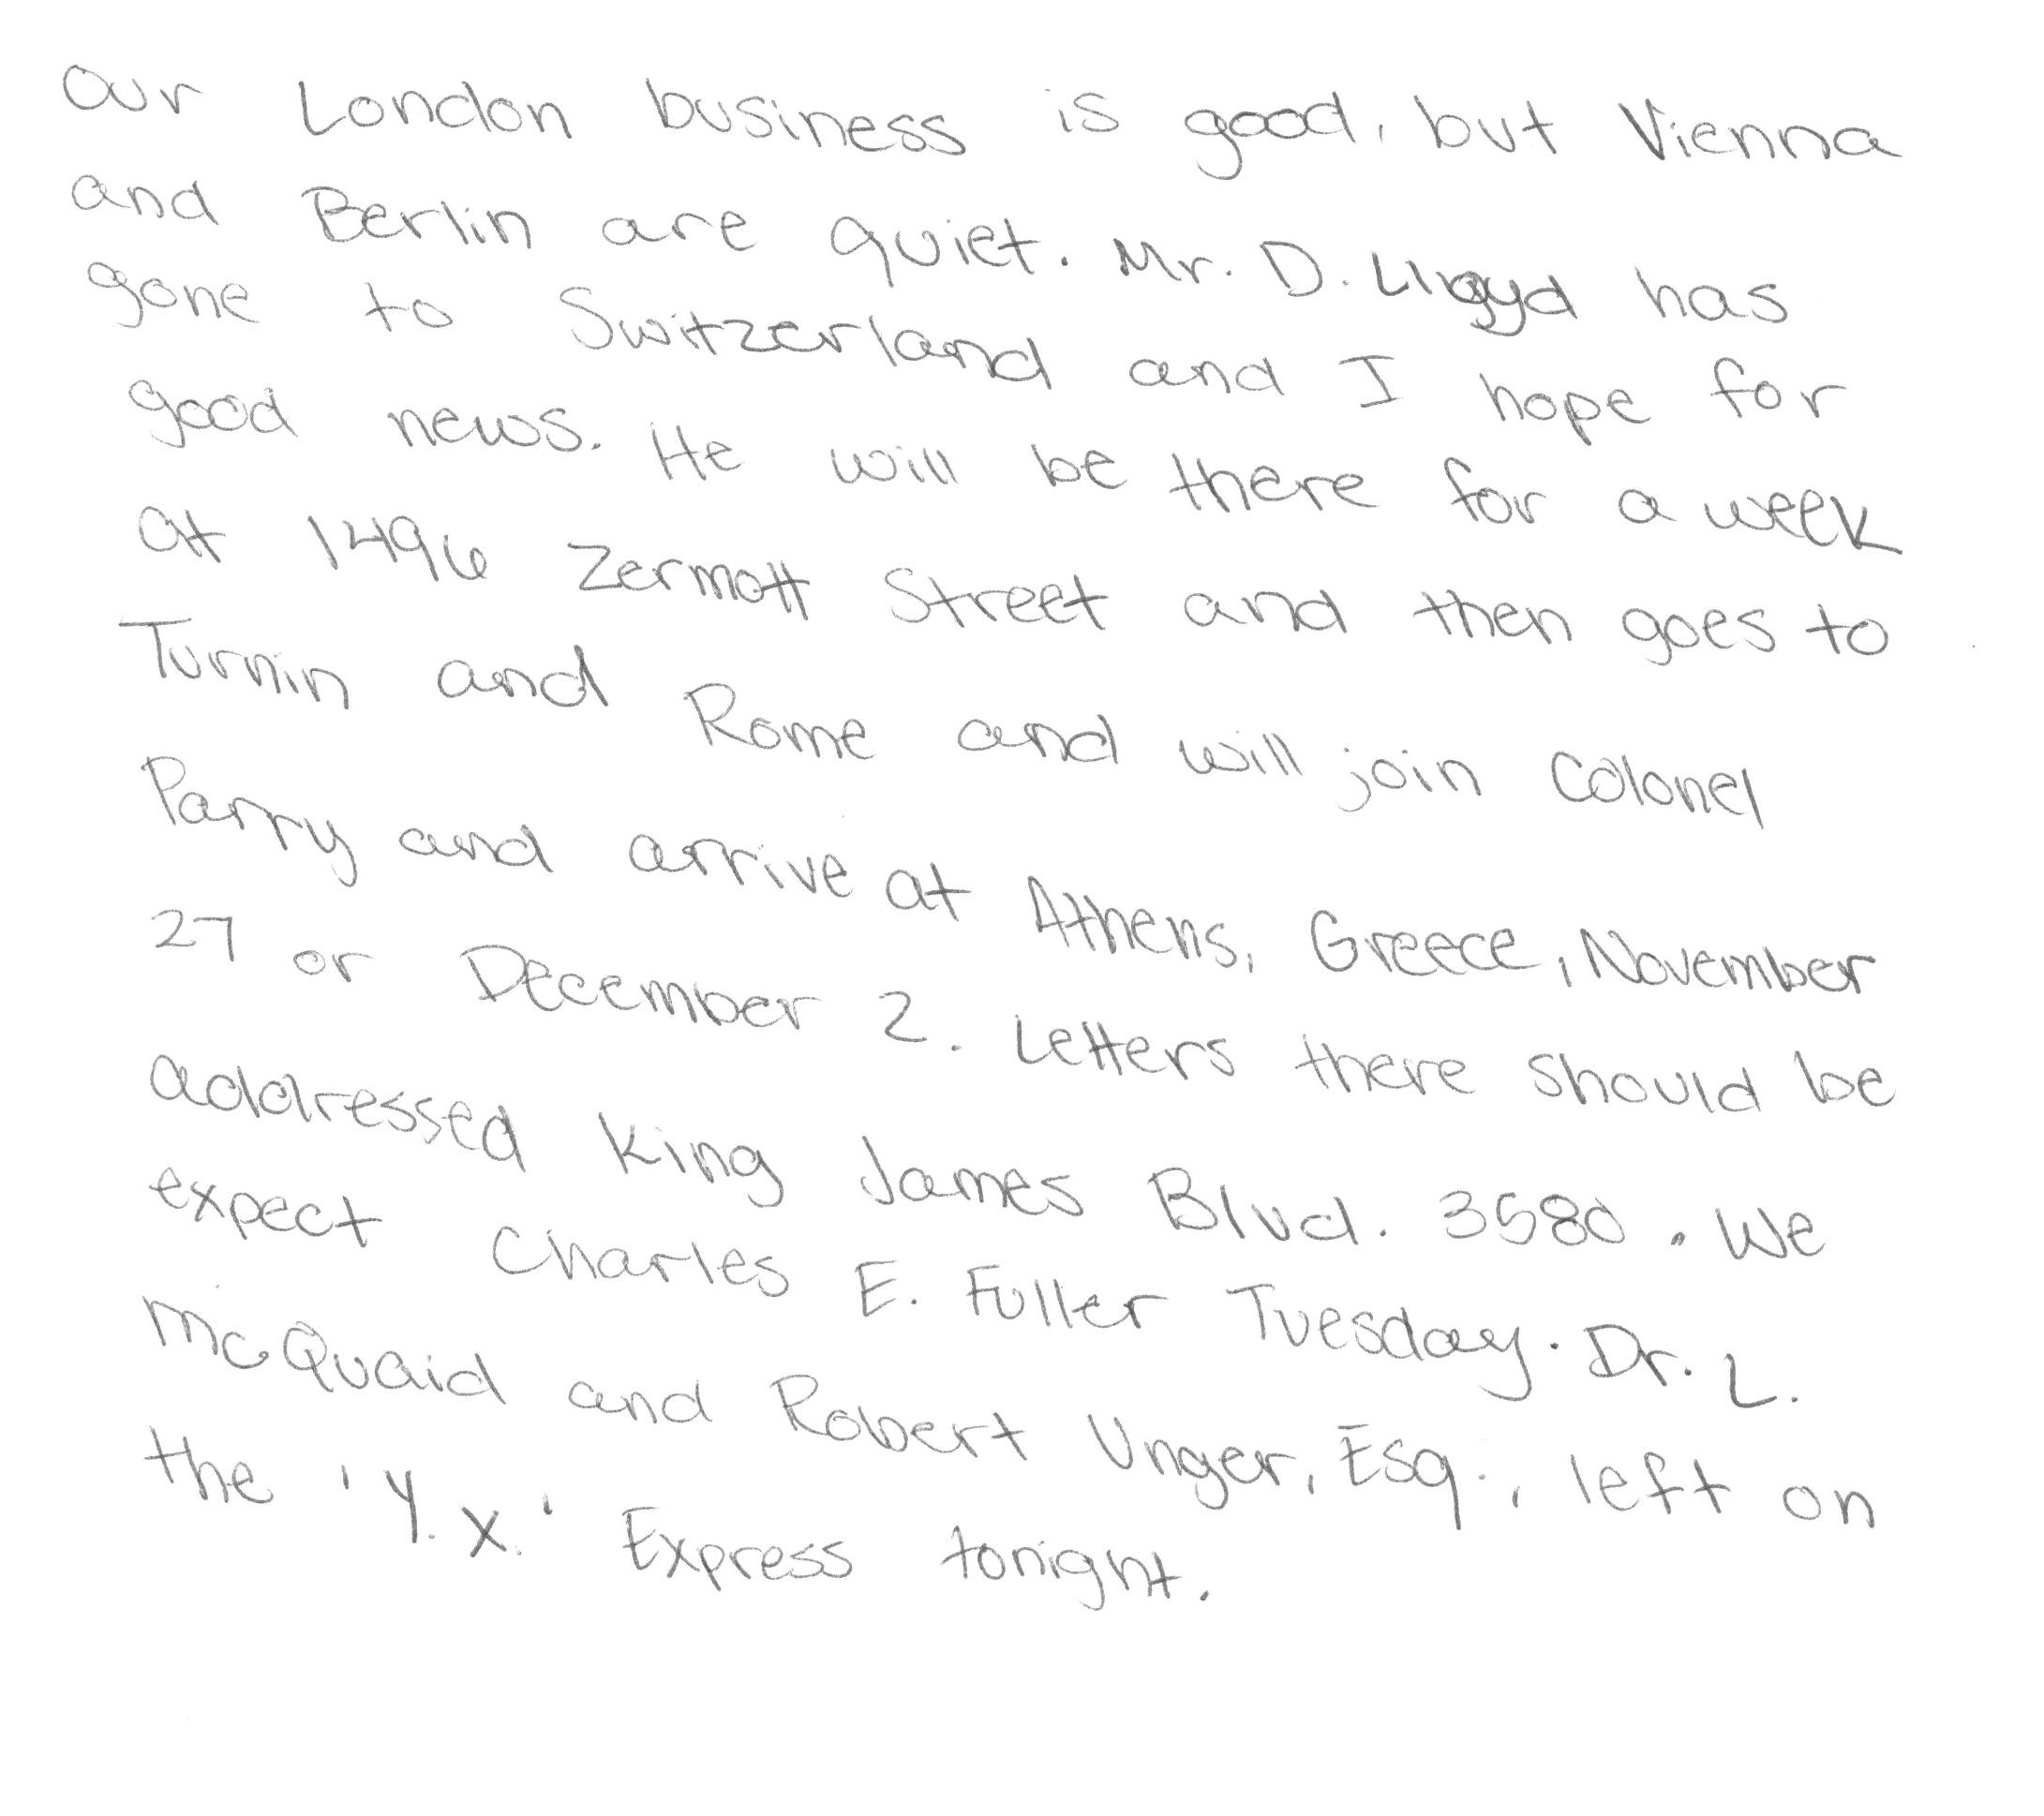 Our London business is good, but Vienna
and Berlin are quiet. Mr. D. Lloyd has
gone to Switzerland and I hope for
good news. He will be there for a week
at 1496 Zermott Street and then goes to
Turnin and Rome and will join Colonel
Parry and arrive at Athens, Greece, November
27 or December 2. Letters there should be
addressed King James Blvd. 3580. We
expect Charles E. Fuller Tuesday. Dr. L.
McQuaid and Robert Unger, Esq., left on
the 'Y.X.' Express tonight.